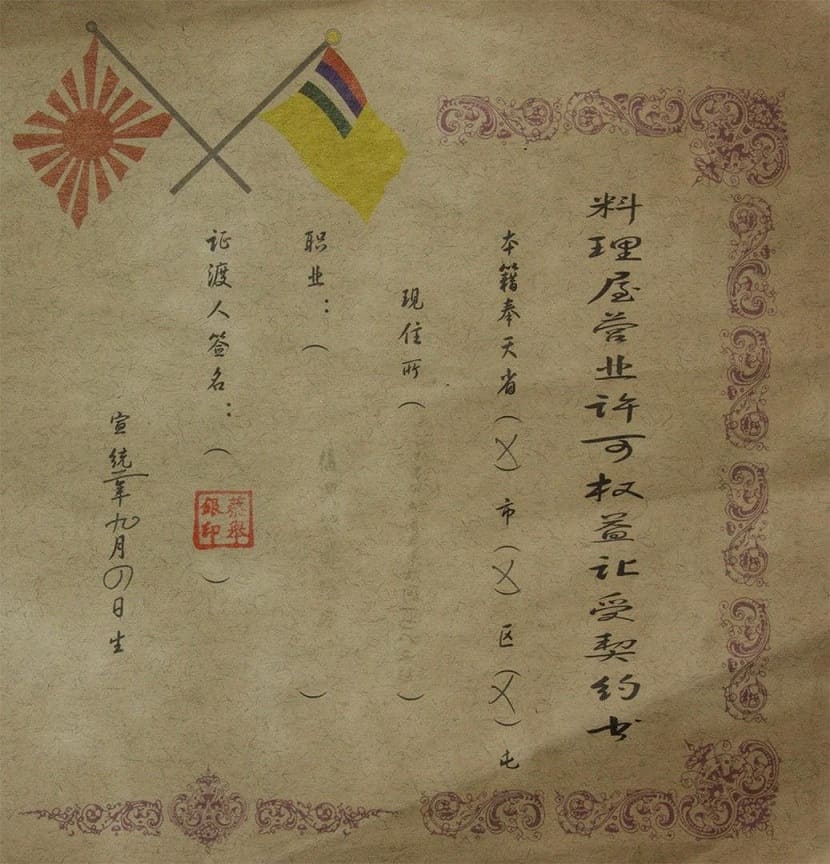 料理屋营业许可权益让受契约书
本籍奉天省(X)市(X)区(X)屯
現住所( )
职业:( )
证渡人签名:( )
銀印
宣統二年九月四日生